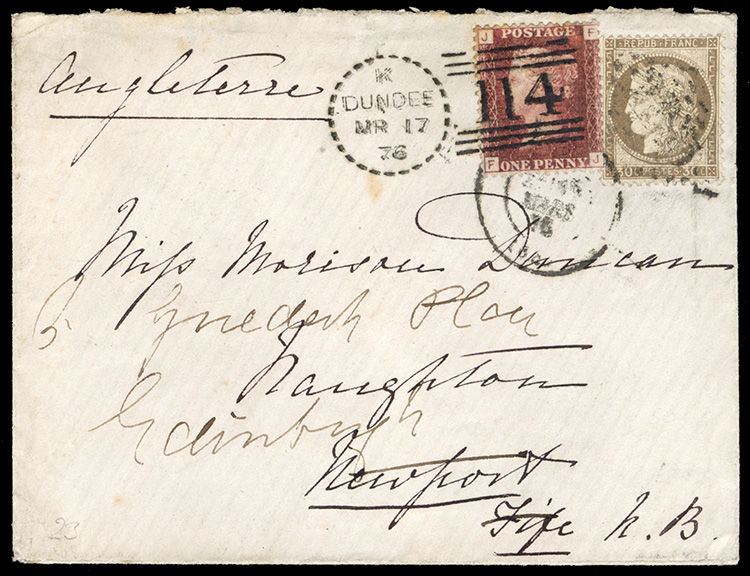 Angleterre
K
DUNDEE
MR 17
76
114
POSTAGE
J F
F J
ONE PENNY
REPUB. FRANC.
30 C POSTES 30 C
MARS
76
Miss Morison Duncan
5
Naughton
Edinburgh
Newport
Fife N.B.
23